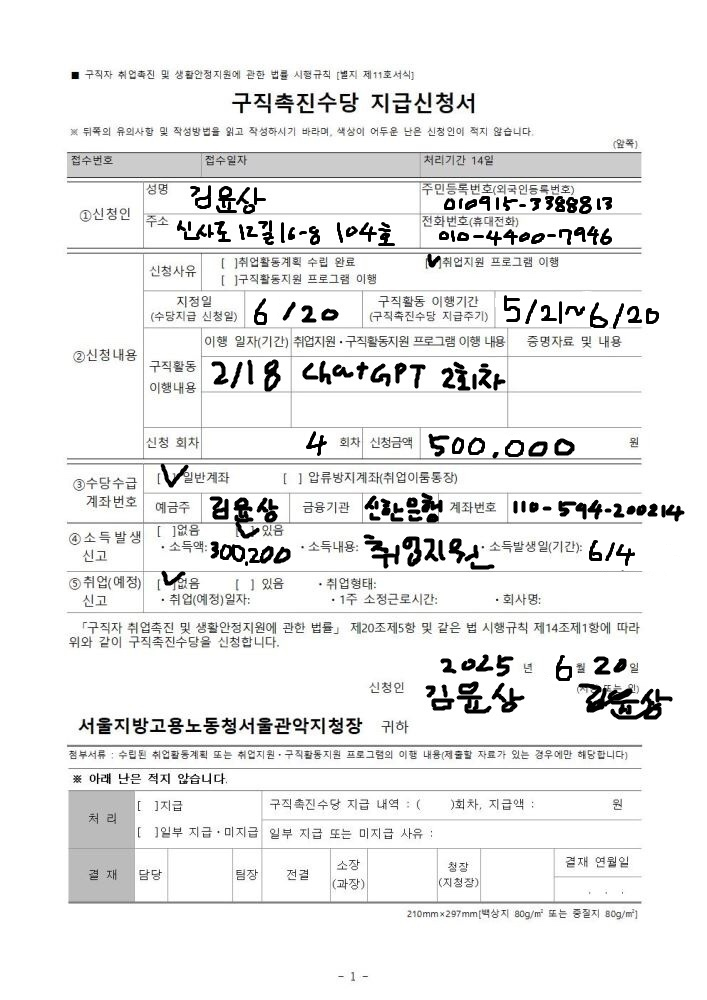 ■ 구직자 취업촉진 및 생활안정지원에 관한 법률 시행규칙 [별지 제11호서식]
구직촉진수당 지급신청서
※ 뒤쪽의 유의사항 및 작성방법을 읽고 작성하시기 바라며, 색상이 어두운 난은 신청인이 적지 않습니다.
(앞쪽)
접수번호 접수일자 처리기간 14일
①신청인 성명 김윤상 주민등록번호(외국인등록번호) 010915-3388813
주소 신사로12길16-8 104호 전화번호(휴대전화) 010-4400-7946
②신청내용 신청사유 [ ]취업활동계획 수립 완료 [✓]취업지원 프로그램 이행
[ ]구직활동지원 프로그램 이행
지정일 (수당지급 신청일) 6/20 구직활동 이행기간 (구직촉진수당 지급주기) 5/21~6/20
구직활동 이행내용 이행 일자(기간) 취업지원·구직활동지원 프로그램 이행 내용 증명자료 및 내용
2/18 ChatGPT 2회차
신청 회차 4 회차 신청금액 500,000 원
③수당수급 계좌번호 [✓]일반계좌 [ ] 압류방지계좌(취업이룸통장)
예금주 김윤상 금융기관 신한은행 계좌번호 110-594-200214
④소득발생 신고 [ ]없음 [✓] 있음
·소득액: 300,200 ·소득내용: 취업지원 ·소득발생일(기간): 6/4
⑤취업(예정) 신고 [✓]없음 [ ] 있음 ·취업형태:
·취업(예정)일자: ·1주 소정근로시간: ·회사명:
「구직자 취업촉진 및 생활안정지원에 관한 법률」 제20조제5항 및 같은 법 시행규칙 제14조제1항에 따라
위와 같이 구직촉진수당을 신청합니다.
2025 년 6 월 20 일
신청인 김윤상 (서명 또는 인) 김윤상
서울지방고용노동청서울관악지청장 귀하
첨부서류 : 수립된 취업활동계획 또는 취업지원·구직활동지원 프로그램의 이행 내용(제출할 자료가 있는 경우에만 해당합니다)
※ 아래 난은 적지 않습니다.
처 리 [ ]지급 구직촉진수당 지급 내역 : ( )회차, 지급액 : 원
[ ]일부 지급·미지급 일부 지급 또는 미지급 사유 :
결 재 담당 팀장 전결 소장 (과장) 청장 (지청장) 결재 연월일
. . .
210mm×297mm[백상지 80g/㎡ 또는 중질지 80g/㎡]
- 1 -